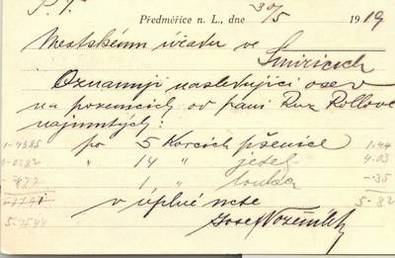 P. T.
Předměřice n. L., dne 30/5 1919
Mestskému úřadu ve Smiřicích
Oznamuji nasledující osev
na pozemcích od paní Ruz Rollove
najmutých:
1-4385 po 5 Korcích pšenice 1.44
" 14 " jetel 4.03
" 1 " louka -.35
5-82
v úplné nete
Josef Vozenílek